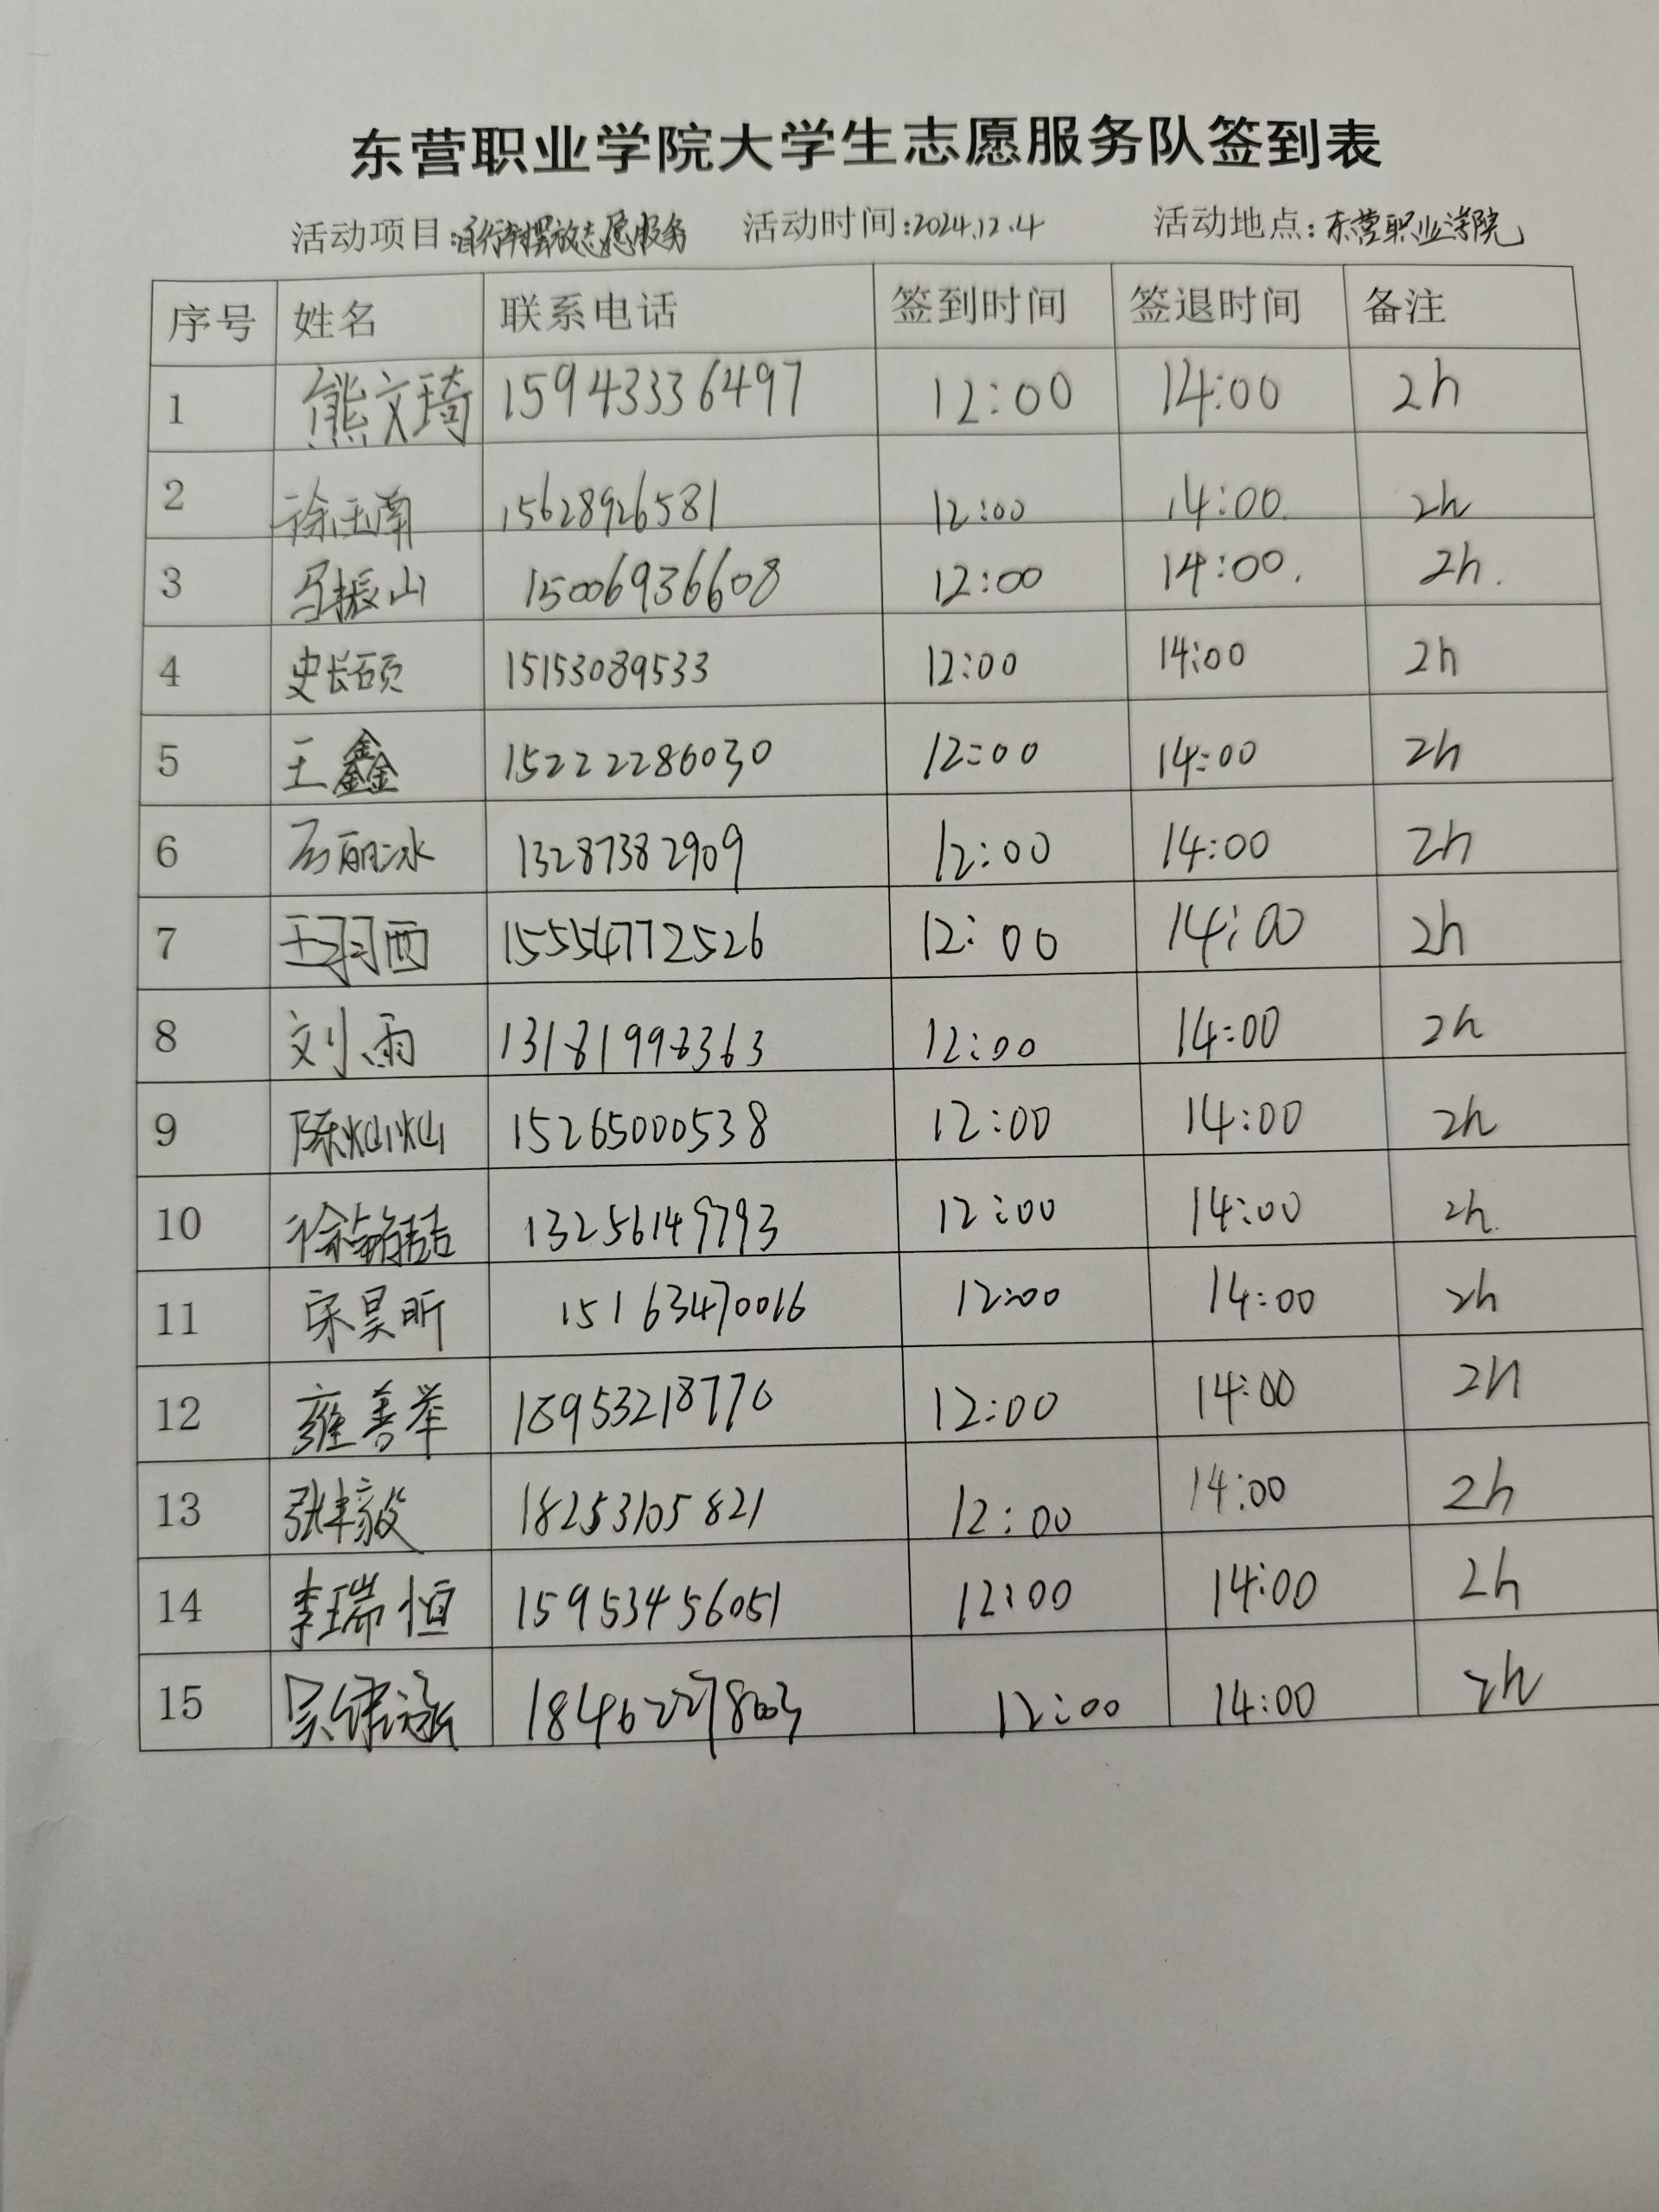 东营职业学院大学生志愿服务队签到表
活动项目:自行车摆放志愿服务 活动时间:2024.12.4 活动地点:东营职业学院
序号 姓名 联系电话 签到时间 签退时间 备注
1 熊文琦 15943336497 12:00 14:00 2h
2 徐玉南 15628926581 12:00 14:00 2h
3 马振山 15006936608 12:00 14:00. 2h.
4 史长硕 15153089533 12:00 14:00 2h
5 王鑫 15222286030 12:00 14:00 2h
6 石丽冰 13287382909 12:00 14:00 2h
7 王羽西 15554772526 12:00 14:00 2h
8 刘雨 13181998363 12:00 14:00 2h
9 陈灿灿 15265000538 12:00 14:00 2h
10 13256149793 12:00 14:00 2h.
11 宋昊昕 15163470016 12:00 14:00 2h
12 雍善举 18953218770 12:00 14:00 2h
13 18253105821 12:00 14:00 2h
14 李瑞恒 15953456051 12:00 14:00 2h
15 12:00 14:00 2h